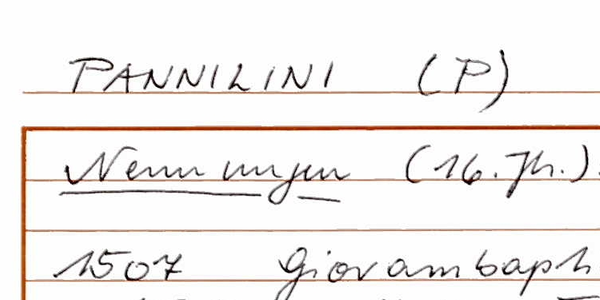 PANNILINI (P)
Nennungen (16. Jh.)
1507 Giovambaph